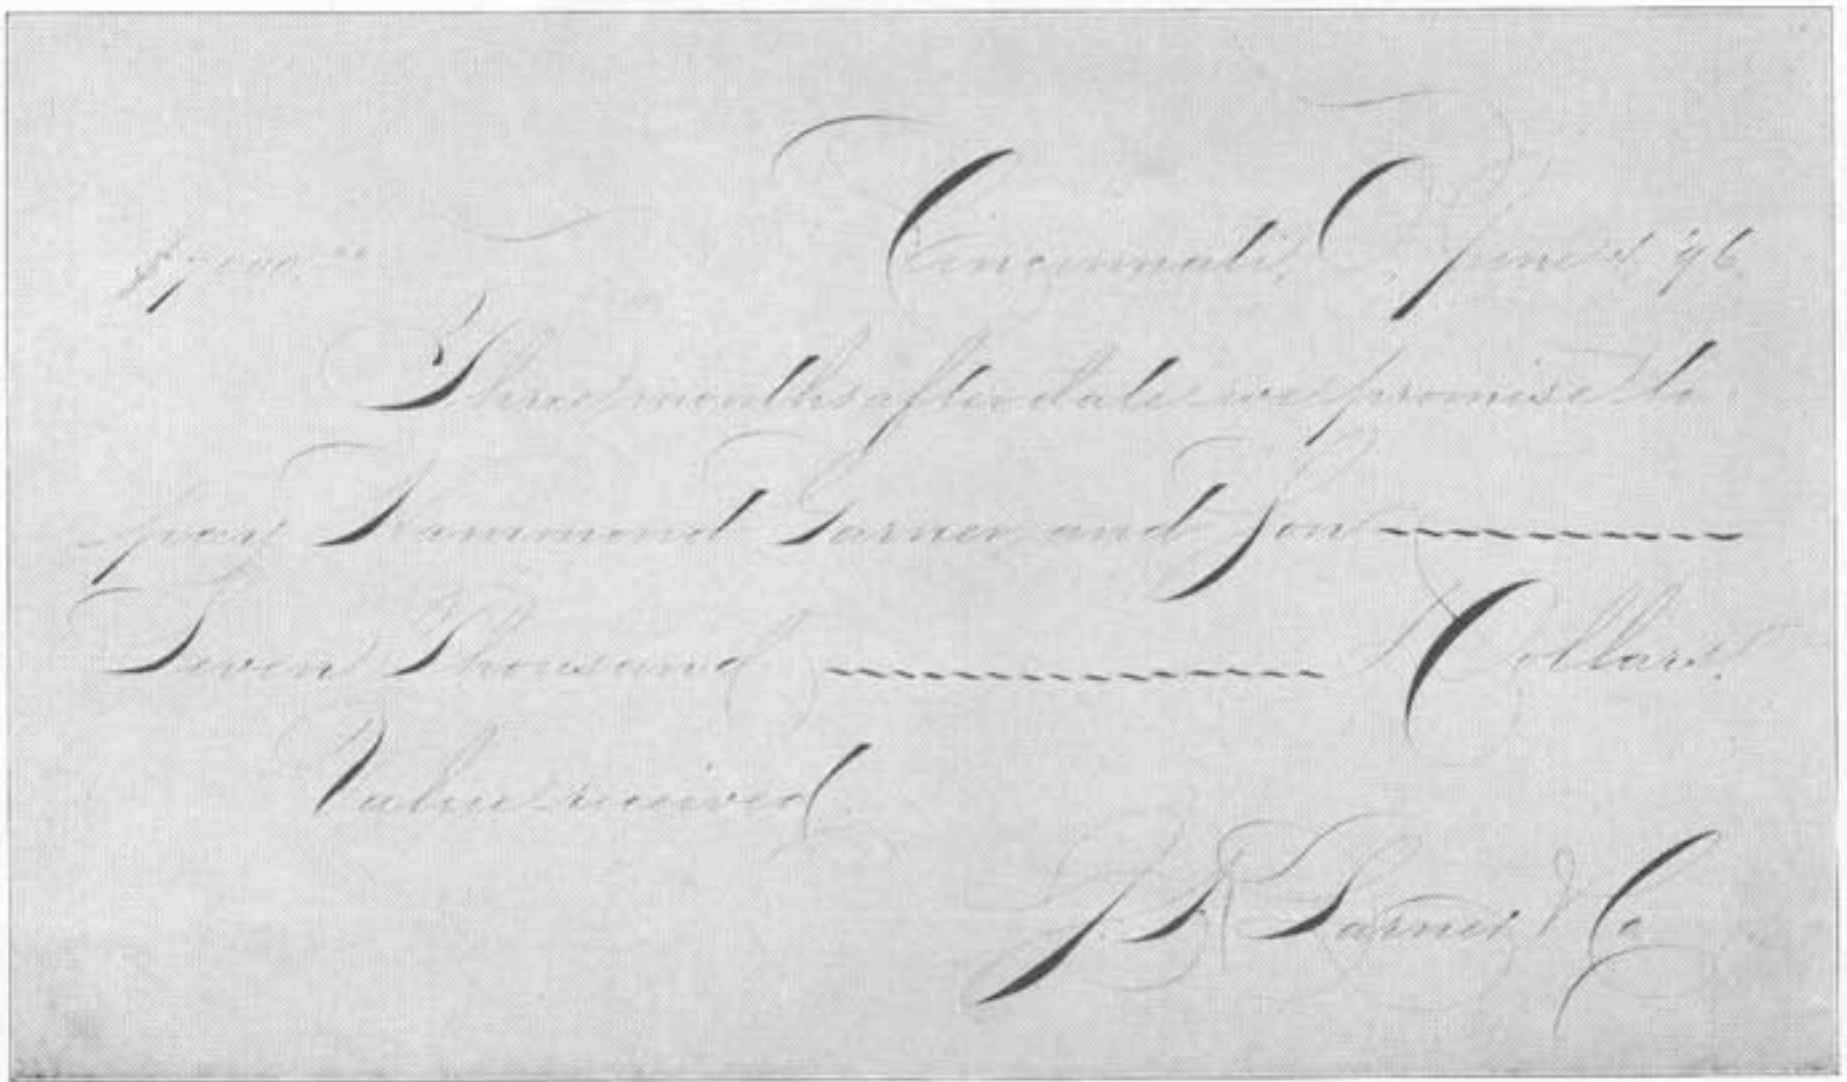 $7000.00 Cincinnati, O, June '96
Three months after date we promise to
pay Hammond Garner and Son
Seven Thousand Dollars.
Value received.
& Co